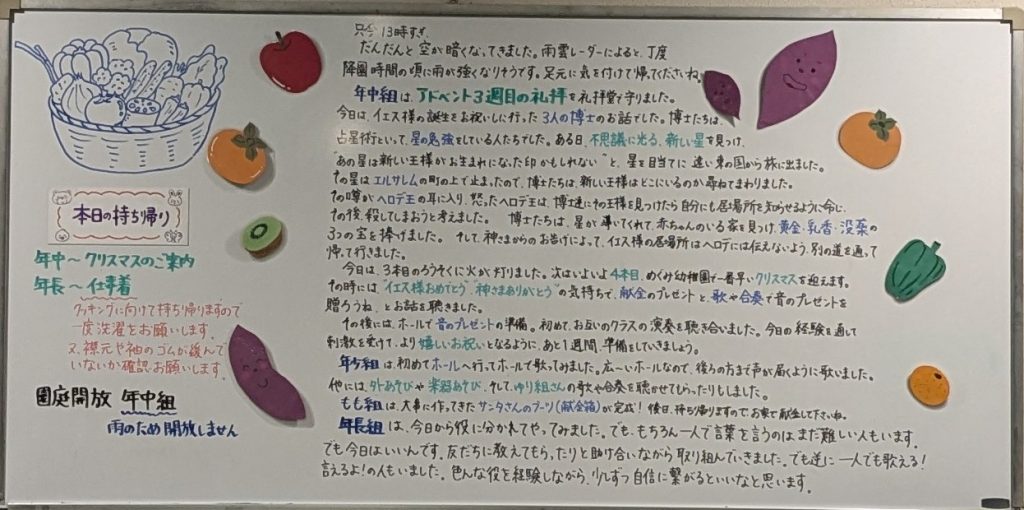 本日の持ち帰り
年中〜クリスマスのご案内
年長〜仕事着
クッキングに向けて持ち帰りますので
一度洗濯をお願いします。
又、襟元や袖のゴムが緩んで
いないか確認お願いします。
園庭開放 年中組
雨のため開放しません
只今13時すぎ、
だんだんと空が暗くなってきました。雨雲レーダーによると、丁度
降園時間の頃に雨が強くなりそうです。足元に気を付けて帰ってくださいね。
年中組は、アドベント3週目の礼拝を礼拝堂で守りました。
今日は、イエス様の誕生をお祝いしに行った3人の博士のお話でした。博士たちは、
占星術といって、星の勉強をしている人たちでした。ある日、不思議に光る、新しい星を見つけ、
"あの星は新しい王様がお生まれになった印かもしれない"と、星を目当てに遠い東の国から旅に出ました。
その星はエルサレムの町の上で止まったので、博士たちは、新しい王様はどこにいるのか尋ねてまわりました。
その噂がヘロデ王の耳に入り、怒ったヘロデ王は、博士達にその王様を見つけたら自分にも居場所を知らせるように命じ、
その後、殺してしまおうと考えました。 博士たちは、星が導いてくれて、赤ちゃんのいる家を見つけ、黄金・乳香・没薬の
3つの宝を捧げました。 そして、神さまからのお告げによって、イエス様の居場所はヘロデには伝えないよう、別の道を通って
帰って行きました。
今日は、3本のろうそくに火が灯りました。次はいよいよ4本目、めぐみ幼稚園で一番早いクリスマスを迎えます。
その時には、"イエス様おめでとう""神さまありがとう"の気持ちで、献金のプレゼントと、歌や合奏で音のプレゼントを
贈ろうね、とお話を聴きました。
その後には、ホールで音のプレゼントの準備。初めて、お互いのクラスの演奏を聴き合いました。今日の経験を通して
刺激を受けて、より嬉しいお祝いとなるように、あと1週間、準備をしていきましょう。
年少組は、初めてホールへ行ってホールで歌ってみました。広ーいホールなので、後ろの方まで声が届くように歌いました。
他には、外あそびや楽器あそび、そして、ゆり組さんの歌や合奏を聴かせてもらったりもしました。
もも組は、大事に作ってきたサンタさんのブーツ(献金箱)が完成!後日、持ち帰りますので、お家で献金して下さいね。
年長組は、今日から役に分かれてやってみました。でも、もちろん一人で言葉を言うのはまだ難しい人もいます。
でも今日はいいんです。友だちに教えてもらったりと助け合いながら取り組んでいきました。でも逆に一人でも歌える!
言えるよ!の人もいました。色んな役を経験しながら、少しずつ自信に繋がるといいなと思います。